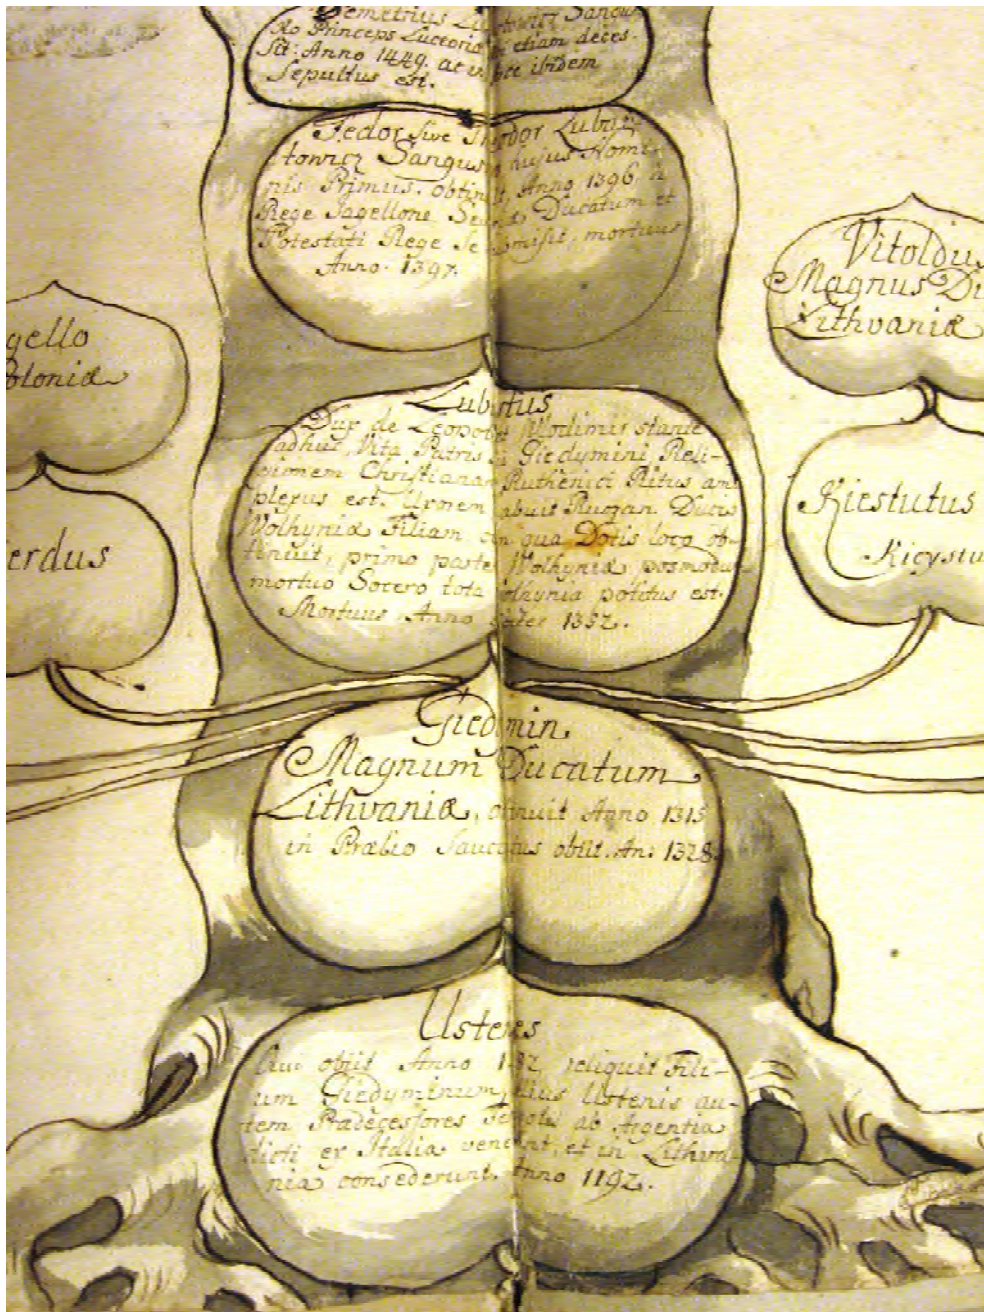 Demetrius
Princeps Luceoria etiam deces-
sit: Anno 1449. ac ibidem
Sepultus est.
Fedor sive Theodor Lubar
towicz Sangus hujus Nomi
nis Primus. obtinuit, Anno 1396.
Rege Jagellone Ducatum et
Potestati Rege se submisit, mortuus
Anno 1397.
Vitoldus
Magnus Du
Lithvaniæ
gello
oloniæ
Lubartus
Dux de Wlodimir stante
adhuc Vita Patris sui Giedymini, Reli-
gionem Christianam Ruthenici Ritus am
plexus est. Uxorem habuit Ducis
Wolhyniæ Filiam, cum qua Dotis loco ob-
tinuit, primo parte Wolhyniæ posmodum
mortuo Socero tota Wolhynia potitus est.
Mortuus Anno 1352.
erdus
Kiestutus
Kieystu
Giedymin
Magnum Ducatum
Lithvaniæ, obtinuit Anno 1315
in Prælio Sauciatus obiit. An: 1328.
Usteres
Qui obiit Anno reliquit Fili-
um Giedyminum, illius Ustenis au-
tem Prædecessores ab Argentia
dicti ex Italia venerunt, et in Lithva-
nia consederunt. Anno 1192.